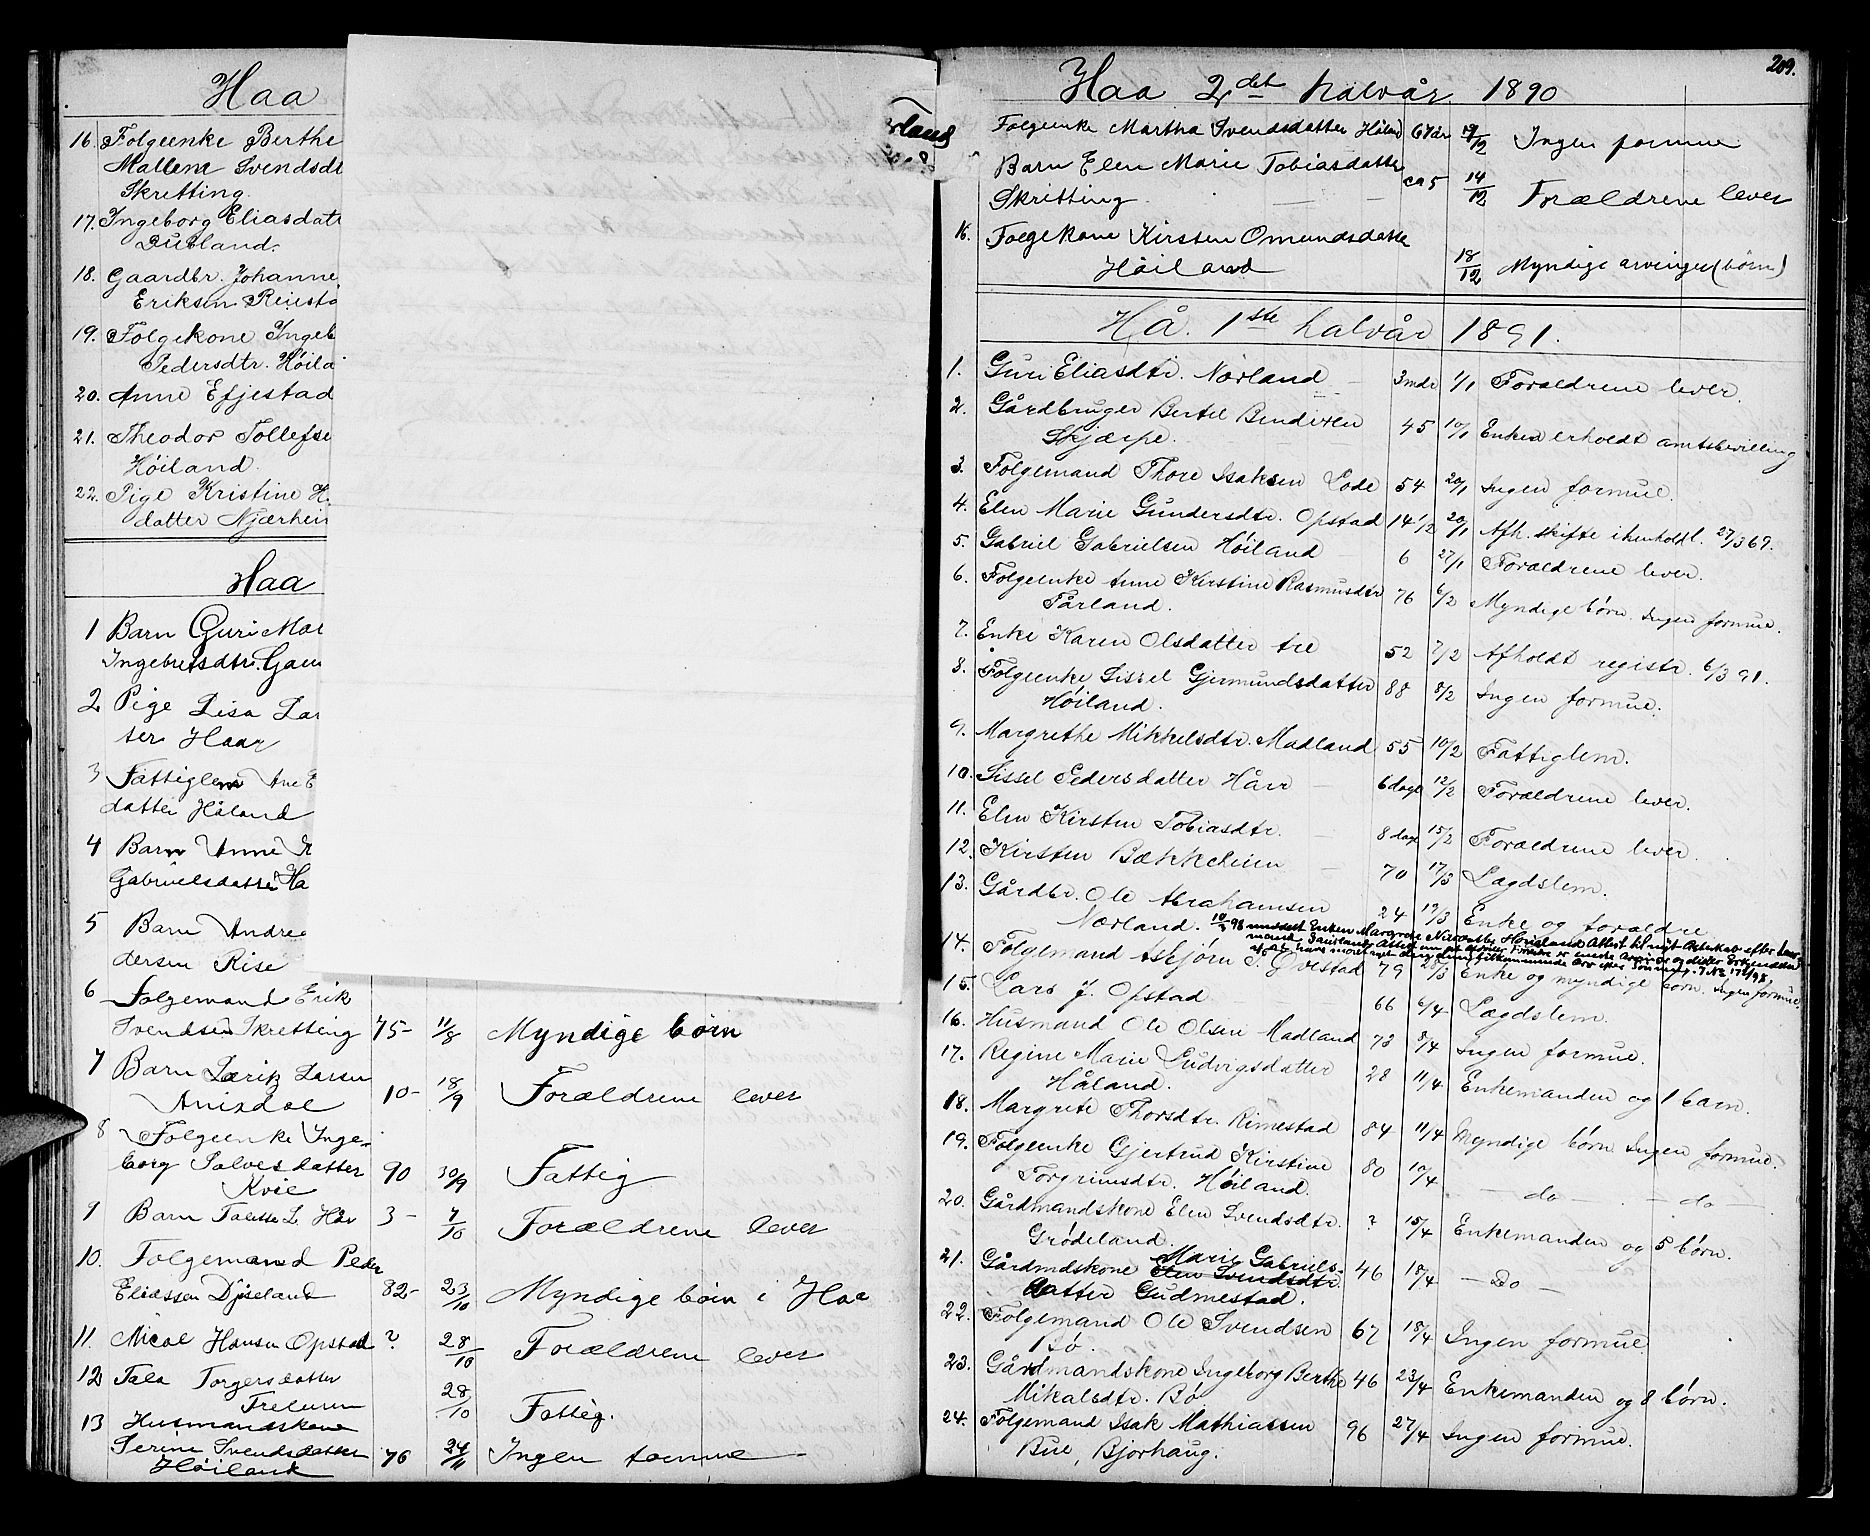 Haa
16. Folgeenke Berthe
Mallene Svendsdt
Skretting.
17. Ingeborg Eliasdatt
18. Gaardbr. Johanne
Eriksen
19. Folgekone Ingeb
Pedersdtr. Höila
20. Anne Efjestad
21. Theodor Tollefse
Höiland.
22. Pige Kristine H.
datter Njærhein
Haa
1 Barn Guri Mar
Ingebretsdtr. Gam
2 Pige Lisa Lar
ter Haar
3 Fattiglem Ane E
datter Håland
4 Barn Anne
Gabrielsdatter Ha
5 Barn Andrea
dersen Rise
6 Folgemand Erik
Svendsen Skretting 75- 11/8 Myndige börn
7 Barn Lærik Larsen
Anisdal 10- 18/9 Forældrene lever
8 Folgeenke Inge-
borg Salvesdatter 90 30/9 Fattig
Kvie
9 Barn Talette L. Hår 3- 7/10 Forældrene lever
10. Folgemand Peder
Eliassen Djseland 82- 23/10 Myndige börn i Haa
11. Nicol Hansen Opstad ? 28/10 Forældrene lever
12 Tala Torgersdatter
28/10 Fattig.
13 Husmandskone
Serine Svendsdatter 76 24/11 Ingen formue
Höiland
rland
209.
Haa 2det halvår 1890
Folgeenke Martha Svendsdatter Håland 67 år 19/12 Ingen formue
Barn Elen Marie Tobiasdatter
Skretting. — — ca 5 14/12 Forældrene lever
16. Folgekone Kirsten Omundsdatter
Höiland 18/12 Myndige arvinger (börn)
Hå. 1ste halvår 1891.
1. Guri Eliasdtr. Nærland — 3 mdr 1/1 Forældrene lever.
2. Gårdbruger Bertel Bendixen
Skjærpe. 45 10/1 Enken erholdt amtsbevilling
3. Folgemand Thore Isaksen Lode 54 20/1 Ingen formue.
4. Elen Marie Gundersdtr. Opstad 14 1/2 20/1 Afh. skifte ihenholdt. 27/3 69.
5. Gabriel Gabrielsen Höiland — 6 27/1 Forældrene lever.
6. Folgeenke Anne Kirstine Rasmusdtr
Tårland. 76 6/2 Myndige börn. Ingen formue.
7. Enke Karen Olsdatter tre 52 7/2 Afholdt registr. 6/3 91.
8. Folgeenke Sissel Gjermundsdatter
Höiland. 88 8/2 Ingen formue.
9. Margrethe Mikkelsdtr. Madland 55 10/2 Fattiglem.
10. Sissel Pedersdatter Hårr — 6 dage 12/2 Forældrene lever.
11. Elen Kirsten Tobiasdtr. — 8 dage 15/2 Forældrene lever.
12. Kirsten Bækkeheien — 70 17/3 Lægdslem.
13. Gårdbr. Ole Abrahamsen
Nærland. 24 19/3 Enke og forældre
14. Folgemand Asbjörn S. Ovestad 79 20/3 Enke og myndige börn. Ingen formue.
15. Lars J. Opstad — 66 6/4 Lægdslem.
16. Husmand Ole Olsen Madland 73 8/4 Ingen formue.
17. Regine Marie Ludvigsdatter
Håland. 28 11/4 Enkemanden og 1 barn.
18. Margrete Thorsdtr. Rimestad 84 11/4 Myndige börn Ingen formue.
19. Folgeenke Gjertrud Kirstine
Torgrimsdtr. Höiland. 80 10/4 — do — — do —.
20. Gårdmandskone Elen Svendsdtr. ? 15/4 Enkemanden og 5 börn.
Grödeland.
21. Gårdmdskone Elen Svendsdtr Marie Gabriels-
datter Gudmestad. 46 18/4 — Do —
22. Folgemand Ole Svendsen
Bö. 67 18/4 Ingen formue.
23. Gårdmandskone Ingeborg Berthe 46 23/4 Enkemanden og 8 börn.
Mikalsdtr. Bö
24. Folgemand Isak Mathiassen 96 27/4 Ingen formue.
Bue, Bjorhaug.